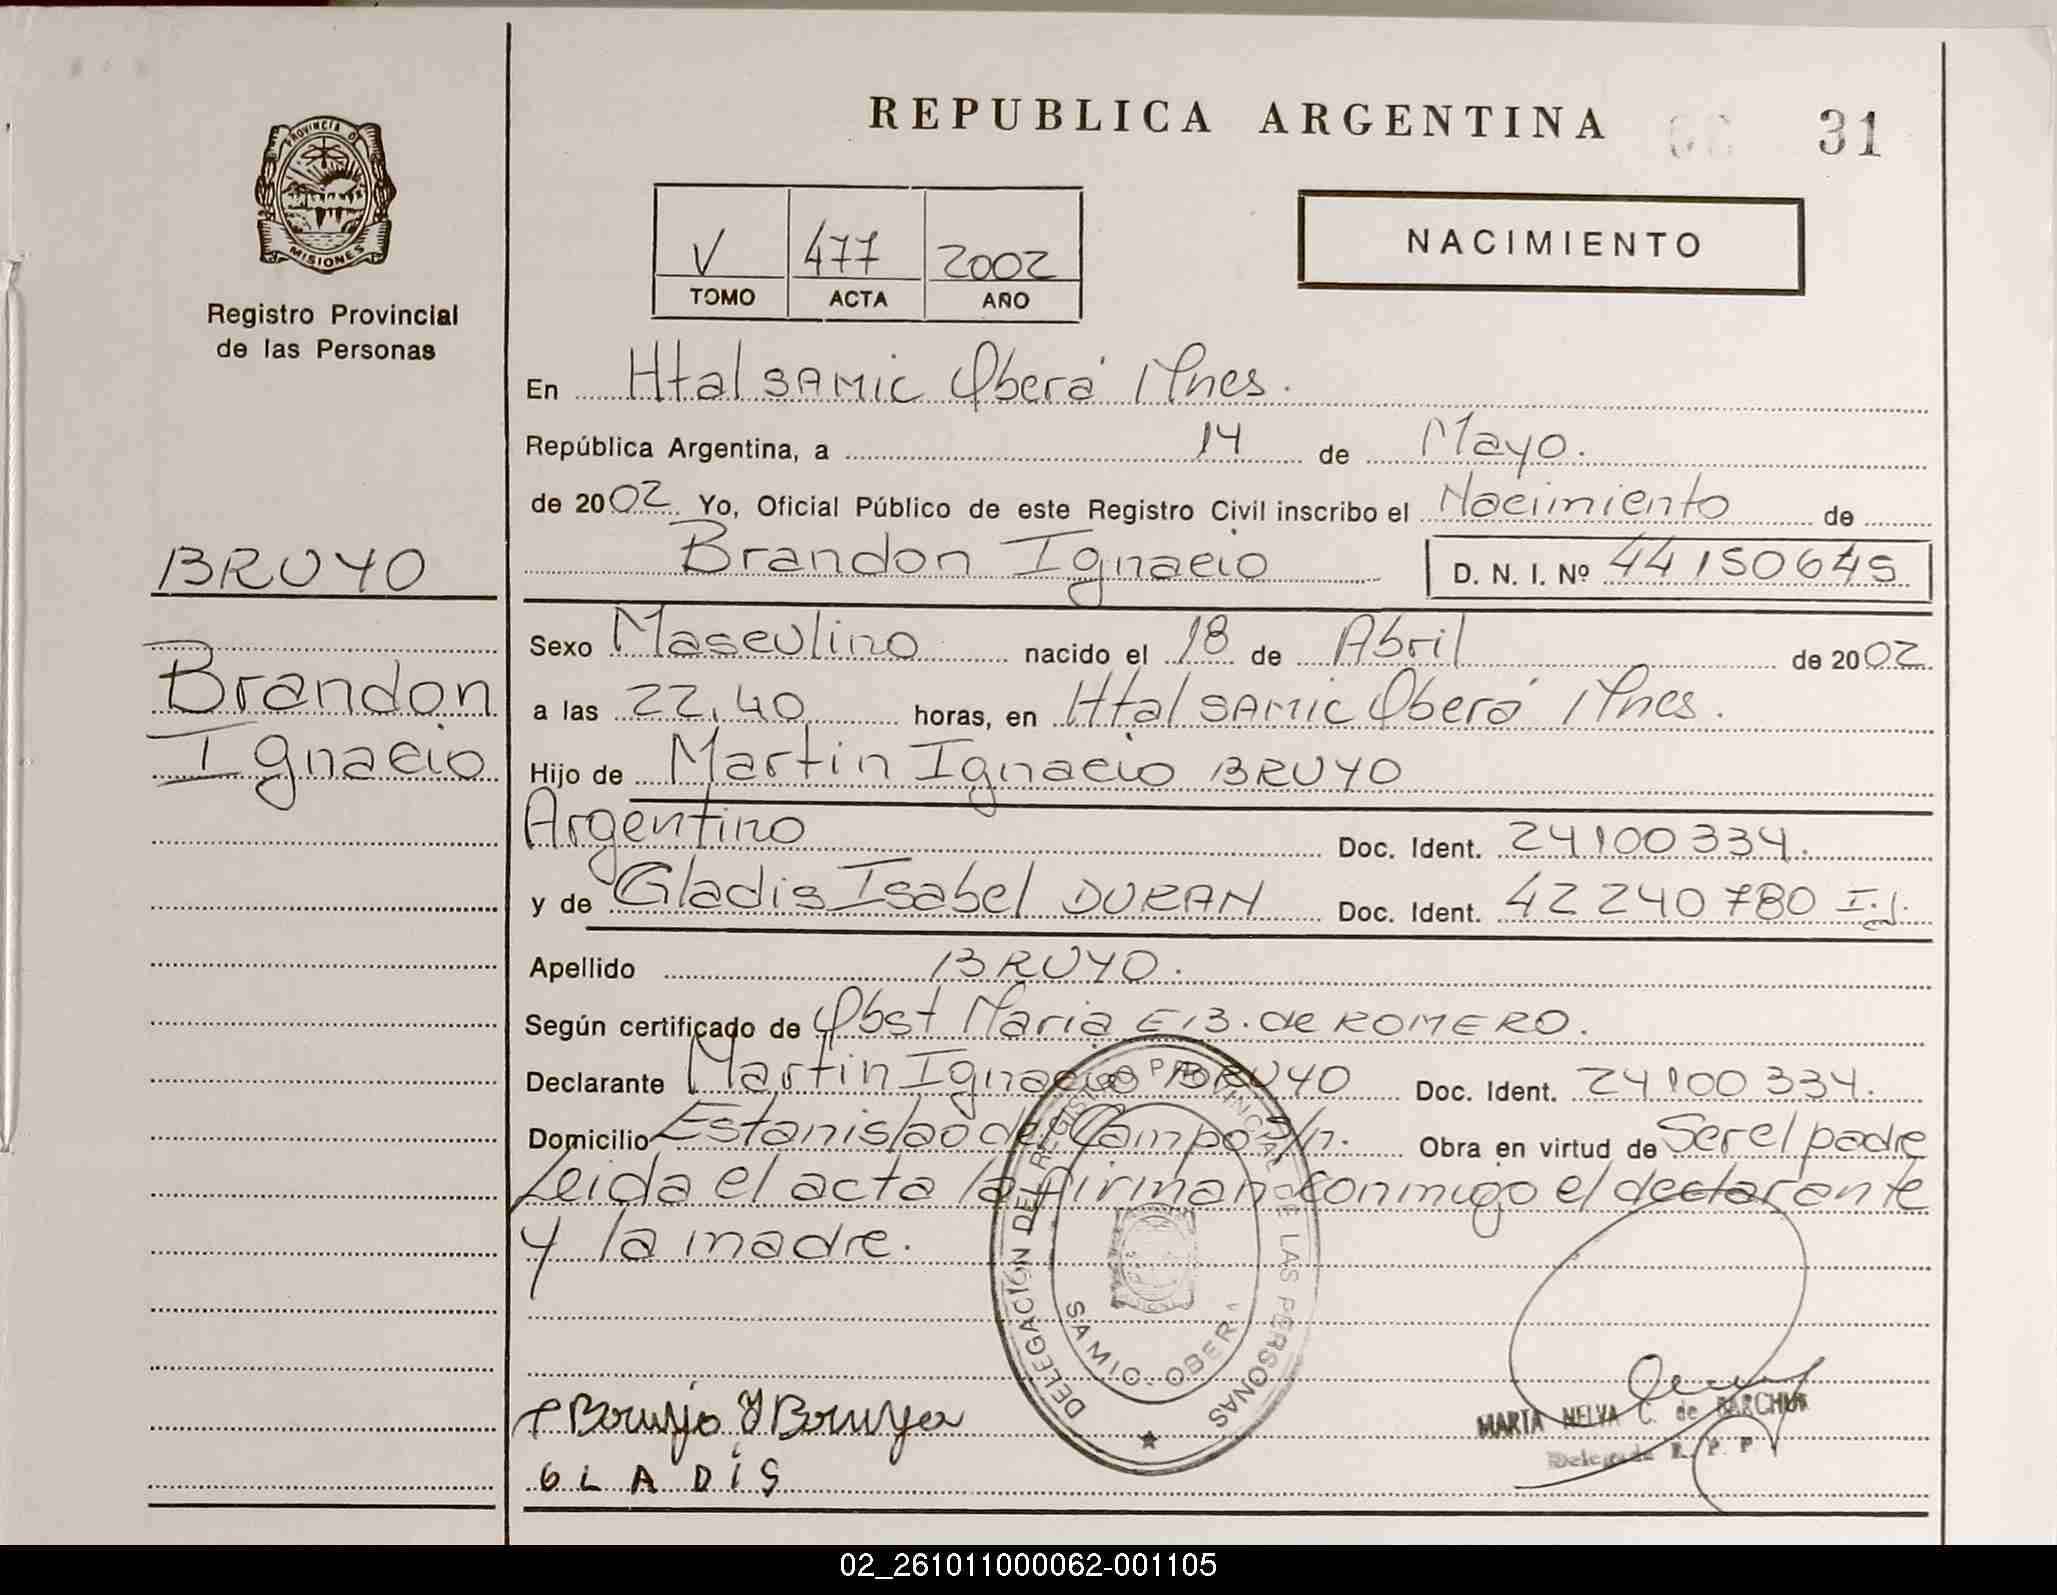 REPUBLICA ARGENTINA
31
PROVINCIA D
MISIONES
Registro Provincial
de las Personas
V 477 2002
TOMO ACTA AÑO
NACIMIENTO
En Htal SAMIC Oberá Mnes.
República Argentina, a 14 de Mayo.
de 2002 Yo, Oficial Público de este Registro Civil inscribo el Nacimiento de
Brandon Ignacio D. N. I. Nº 44150645
BRUYO
Brandon
Ignacio
Sexo Masculino nacido el 18 de Abril de 2002
a las 22,40 horas, en Htal SAMIC Oberá Mnes.
Hijo de Martin Ignacio BRUYO
Argentino Doc. Ident. 24100334.
y de Gladis Isabel DURAN Doc. Ident. 42240780 I.J.
Apellido BRUYO.
Según certificado de Obst Maria E.B. de ROMERO.
Declarante Martin Ignacio BRUYO Doc. Ident. 24100334.
Domicilio Estanislao del Campo S/n. Obra en virtud de Ser el padre
Leida el acta la firman conmigo el declarante
y la madre.
DELEGACIÓN DEL REGISTRO PROVINCIAL DE LAS PERSONAS
SAMIC - OBER
GLADIS
MARTA NELVA C. de BARCHUK
Delegada R. P. P.
02_261011000062-001105